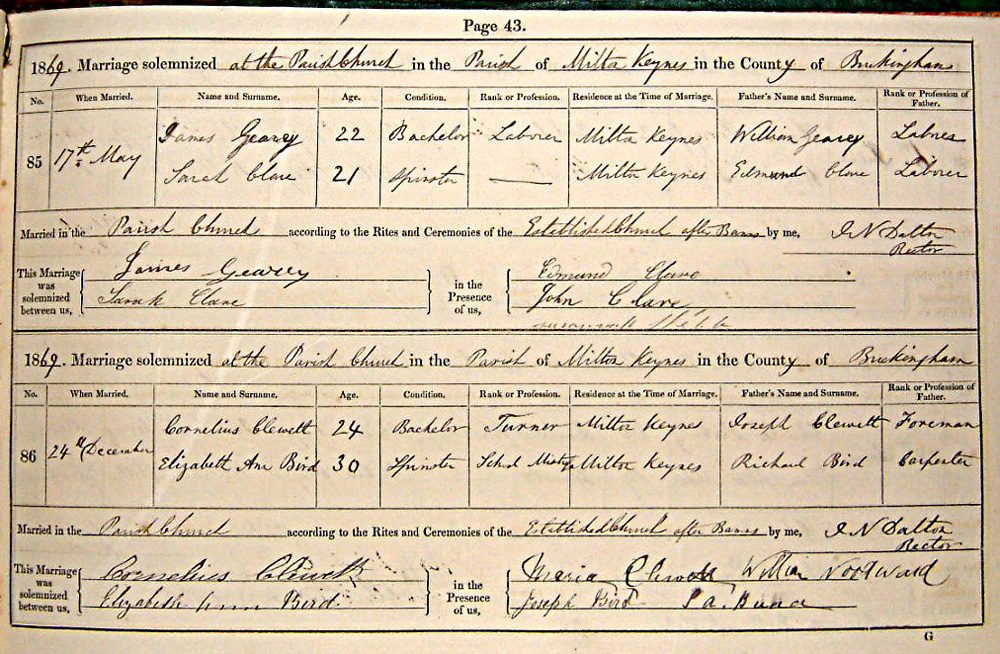 Page 43.
1869. Marriage solemnized at the Parish Church in the Parish of Milton Keynes in the County of Buckingham
No. When Married. Name and Surname. Age. Condition. Rank or Profession. Residence at the Time of Marriage. Father's Name and Surname. Rank or Profession of Father.
James Gearey 22 Bachelor Laborer Milton Keynes William Gearey Laborer
85 17th May
Sarah Clare 21 Spinster — Milton Keynes Edmund Clare Laborer
Married in the Parish Church according to the Rites and Ceremonies of the Established Church after Banns by me, I N Dalton
Rector
This Marriage was solemnized between us, James Gearey in the Presence of us, Edmund Clare
Sarah Clare John Clare
1869. Marriage solemnized at the Parish Church in the Parish of Milton Keynes in the County of Buckingham
No. When Married. Name and Surname. Age. Condition. Rank or Profession. Residence at the Time of Marriage. Father's Name and Surname. Rank or Profession of Father.
Cornelius Clewett 24 Bachelor Turner Milton Keynes Joseph Clewett Foreman
86 24th December
Elizabeth Ann Bird 30 Spinster School Milton Keynes Richard Bird Carpenter
Married in the Parish Church according to the Rites and Ceremonies of the Established Church after Banns by me, I N Dalton
Rector
This Marriage was solemnized between us, Cornelius Clewett in the Presence of us, Maria Clewett William Woodward
Elizabeth Ann Bird Joseph Bird
G